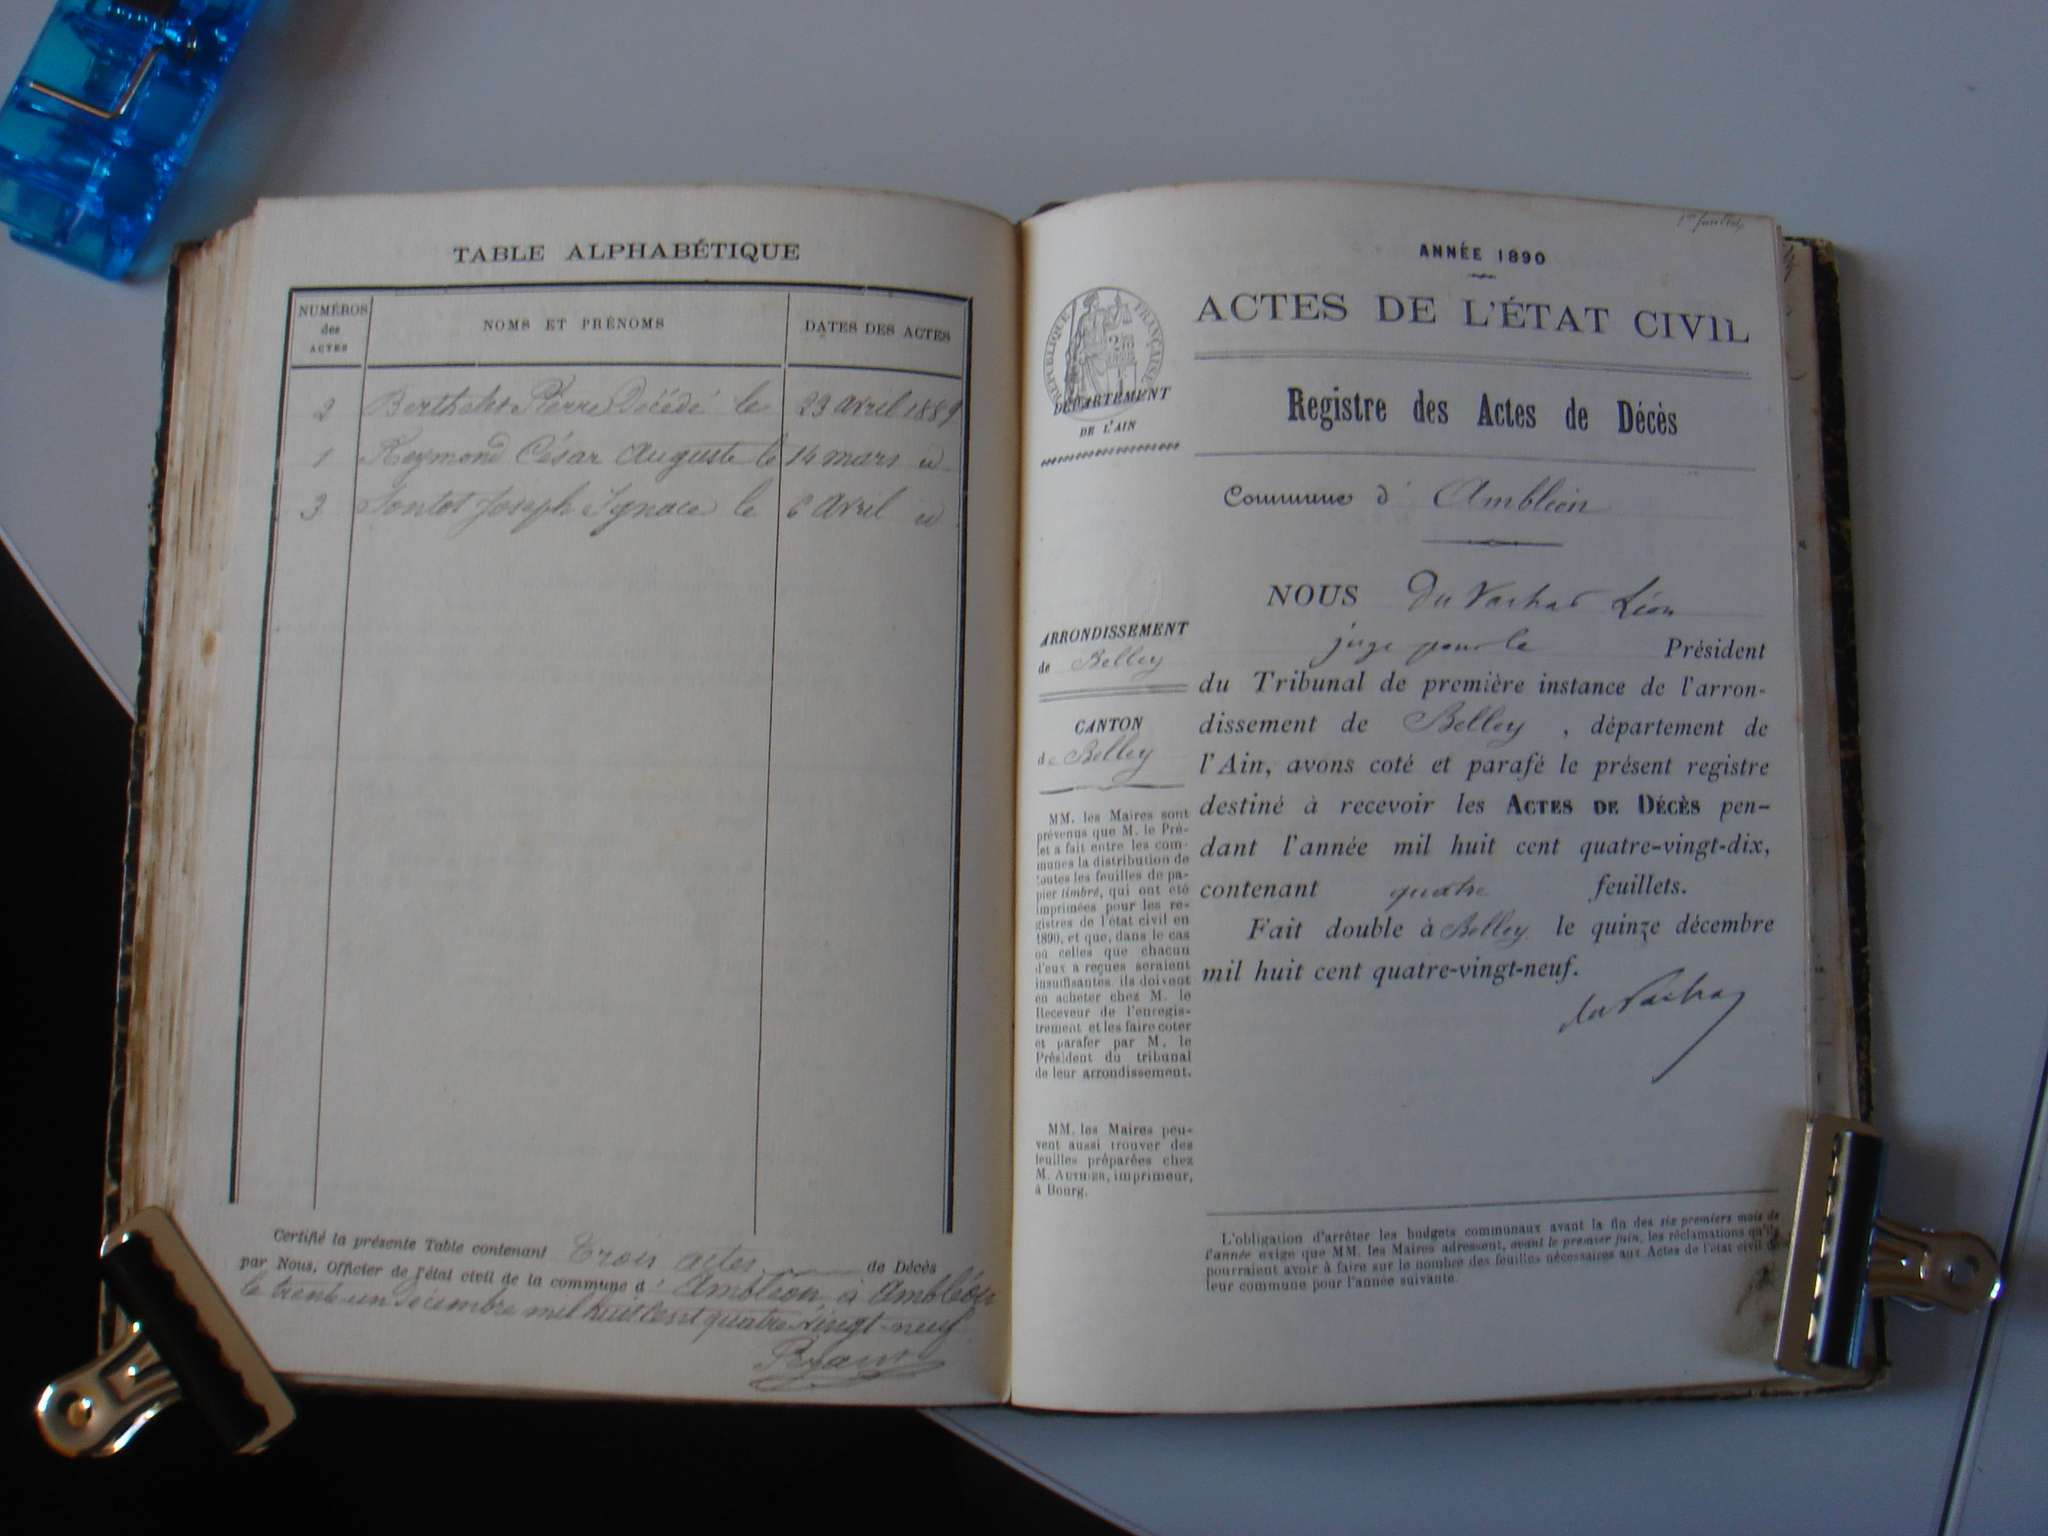 TABLE ALPHABÉTIQUE
NUMÉROS des ACTES
NOMS ET PRÉNOMS
DATES DES ACTES
2 Berthelet Pierre Décédé le 23 avril 1889
1 Reymond César Auguste le 14 mars id
3 Joseph Ignace le 6 avril id
Certifié la présente Table contenant trois actes de Décès
par Nous, Officier de l'état civil de la commune d' Ambléon à Ambléon
le trente un Décembre mil huit cent quatre vingt-neuf
ANNÉE 1890
ACTES DE L'ÉTAT CIVIL
RÉPUBLIQUE FRANÇAISE
DÉPARTEMENT
DE L'AIN
Registre des Actes de Décès
Commune d' Ambléon
NOUS Du Vachat Léon
juge pour le Président
du Tribunal de première instance de l'arron-
dissement de Belley, département de
l'Ain, avons coté et parafé le présent registre
destiné à recevoir les ACTES DE DÉCÈS pen-
dant l'année mil huit cent quatre-vingt-dix,
contenant quatre feuillets.
Fait double à Belley le quinze décembre
mil huit cent quatre-vingt-neuf.
du Vachat
ARRONDISSEMENT
de Belley
CANTON
de Belley
MM. les Maires sont
prévenus que M. le Pré-
fet a fait entre les com-
munes la distribution de
toutes les feuilles de pa-
pier timbré, qui ont été
imprimées pour les re-
gistres de l'état civil en
1890, et que, dans le cas
où celles que chacun
d'eux a reçues seraient
insuffisantes, ils doivent
en acheter chez M. le
Receveur de l'enregis-
trement et les faire coter
et parafer par M. le
Président du tribunal
de leur arrondissement.
MM. les Maires peu-
vent aussi trouver des
feuilles préparées chez
M. AUTHIER, imprimeur,
à Bourg.
L'obligation d'arrêter les budgets communaux avant la fin des six premiers mois de
l'année exige que MM. les Maires adressent, avant le premier juin, les réclamations qu'ils
pourraient avoir à faire sur le nombre des feuilles nécessaires aux Actes de l'état civil de
leur commune pour l'année suivante.